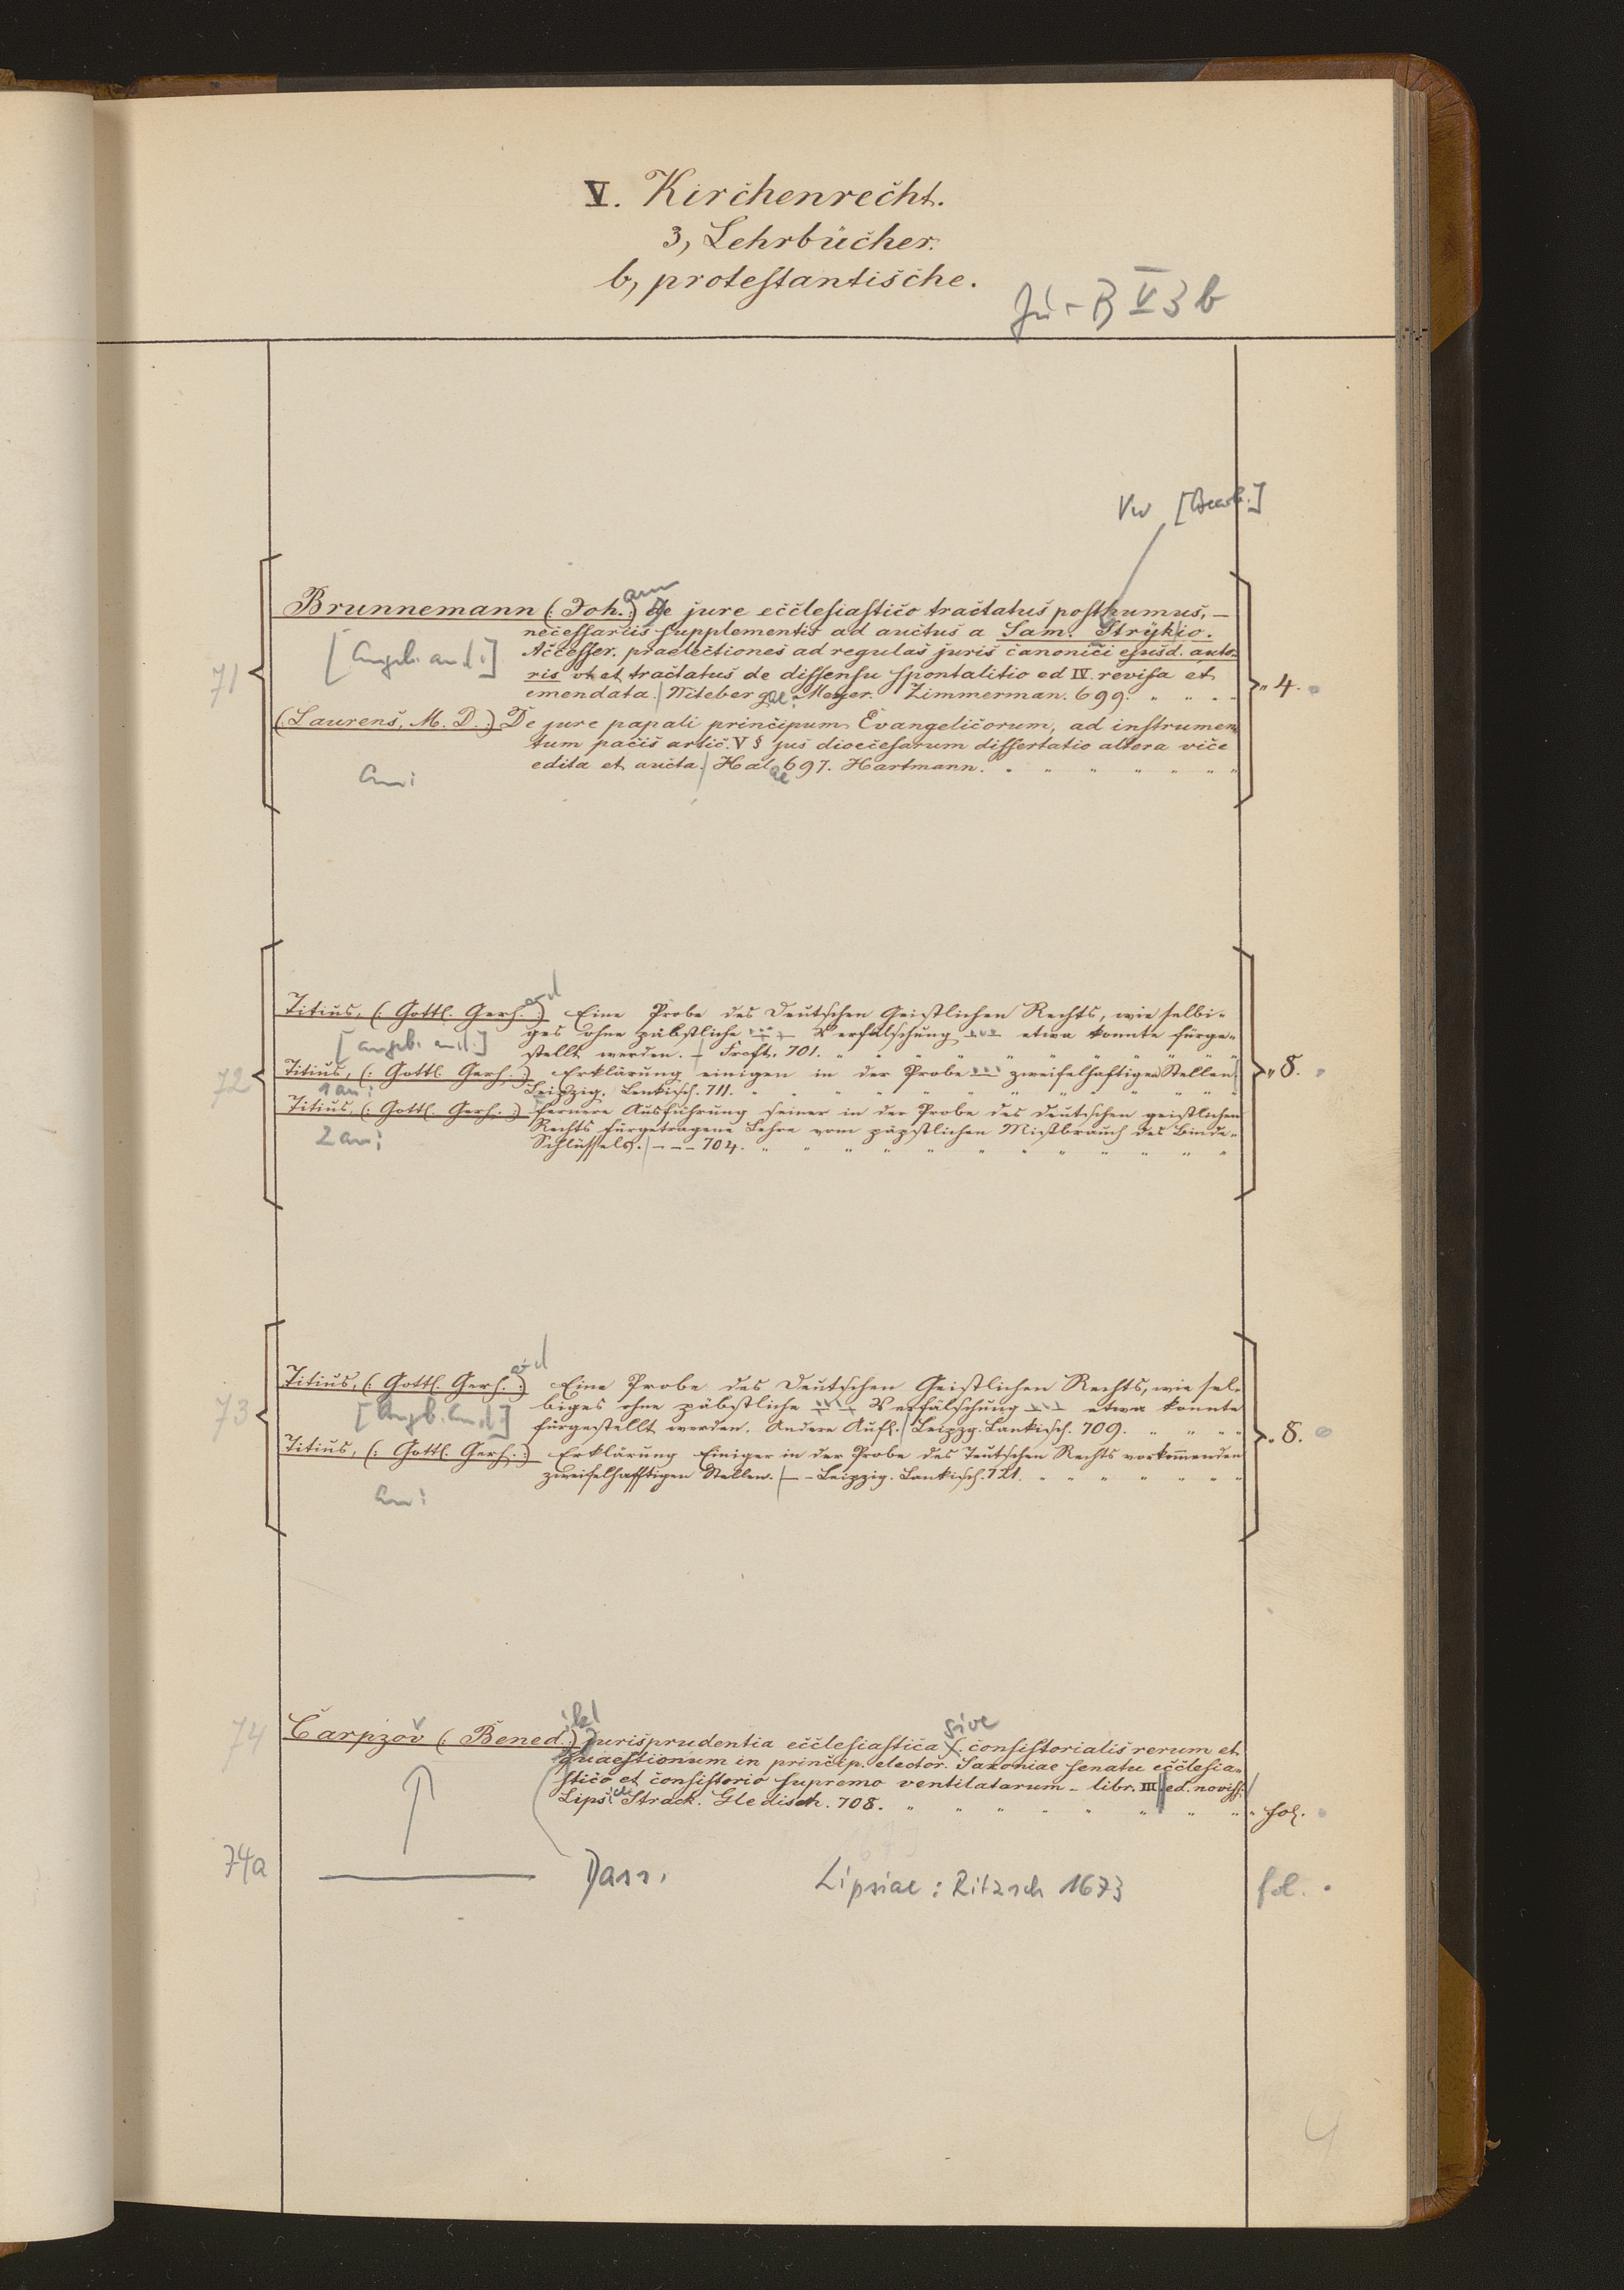 V. Kirchenrecht.
3, Lehrbücher.
b, protestantische.
Jur B V 3 b
Vw [Bearb.]
71
Brunnemann (: Joh. :) ann De jure ecclesiastico tractatus posthumus, –
necessariis supplementis ad auctus a Sam. Strykio.
[Angeb. an d.:]
Accesser. praelectiones ad regulas juris canonici ejusd. auto-
ris ut et tractatus de dissensu sponsalitio ed IV. revisa et
emendata. Witebergae: Meyer. Zimmerman. 699. „ 4.
(: Laurens, M. D. :) De jure papali principum Evangelicorum, ad instrumen
tum pacis artic. V § jus dioecesarum dissertatio altera vice
edita et aucta. Halae 697. Hartmann.
An:
72
Titius, (: Gottl. Gerh. :) ard Eine Probe des Deutschen Geistlichen Rechts, wie selbi-
ges ohne päbstliche Verfälschung etwa konnte fürge-
[angeb. an d.:]
stellt werden. – Frcft. 701.
Titius, (: Gottl. Gerh. :) Erklärung einigen in der Probe zweifelhaftigen Stellen
1 an:
Leipzig. Lankisch. 711. „ 8.
Titius, (: Gottl. Gerh. :) fernere Ausführung seiner in der Probe des deutschen geistlichen
2 an:
Rechts fürgetragene Lehre vom päpstlichen Mißbrauch des Binde-
Schlüssels. – – – 704.
73
Titius, (: Gottl. Gerh. :) ard Eine Probe des Deutschen Geistlichen Rechts, wie sel-
biges ohne päbstliche Verfälschung etwa konnte
[Angeb. An d.:]
fürgestellt werden. Andere Aufl. Leipzg. Lankisch. 709. „ 8.
Titius, (: Gottl. Gerh. :) Erklärung Einiger in der Probe des Teutschen Rechts vorkommenden
zweifelhafftigen Stellen. – – Leipzig. Lankisch. 721.
An:
74
Carpzov (: Bened. :) ikt Jurisprudentia ecclesiastica s. sive consistorialis rerum et
quaestionum in princip. elector. Saxoniae senatu ecclesia-
stico et consistorio supremo ventilatarum – libr. III ed. noviss.
Lipsiae Strack. Gledisch. 708. „ fol.
74a
Dass. Lipsiae: Ritzsch 1673 fol.
4